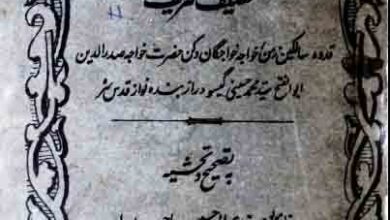 تصنیف لطیف
قدوہ سالکین زمن خواجہ خواجگان دکن حضرت خواجہ صدر الدین
ابوالفتح سید محمد حسینی گیسو دراز بندہ نواز قدس سرہ
بہ تصحیح و تحشیہ